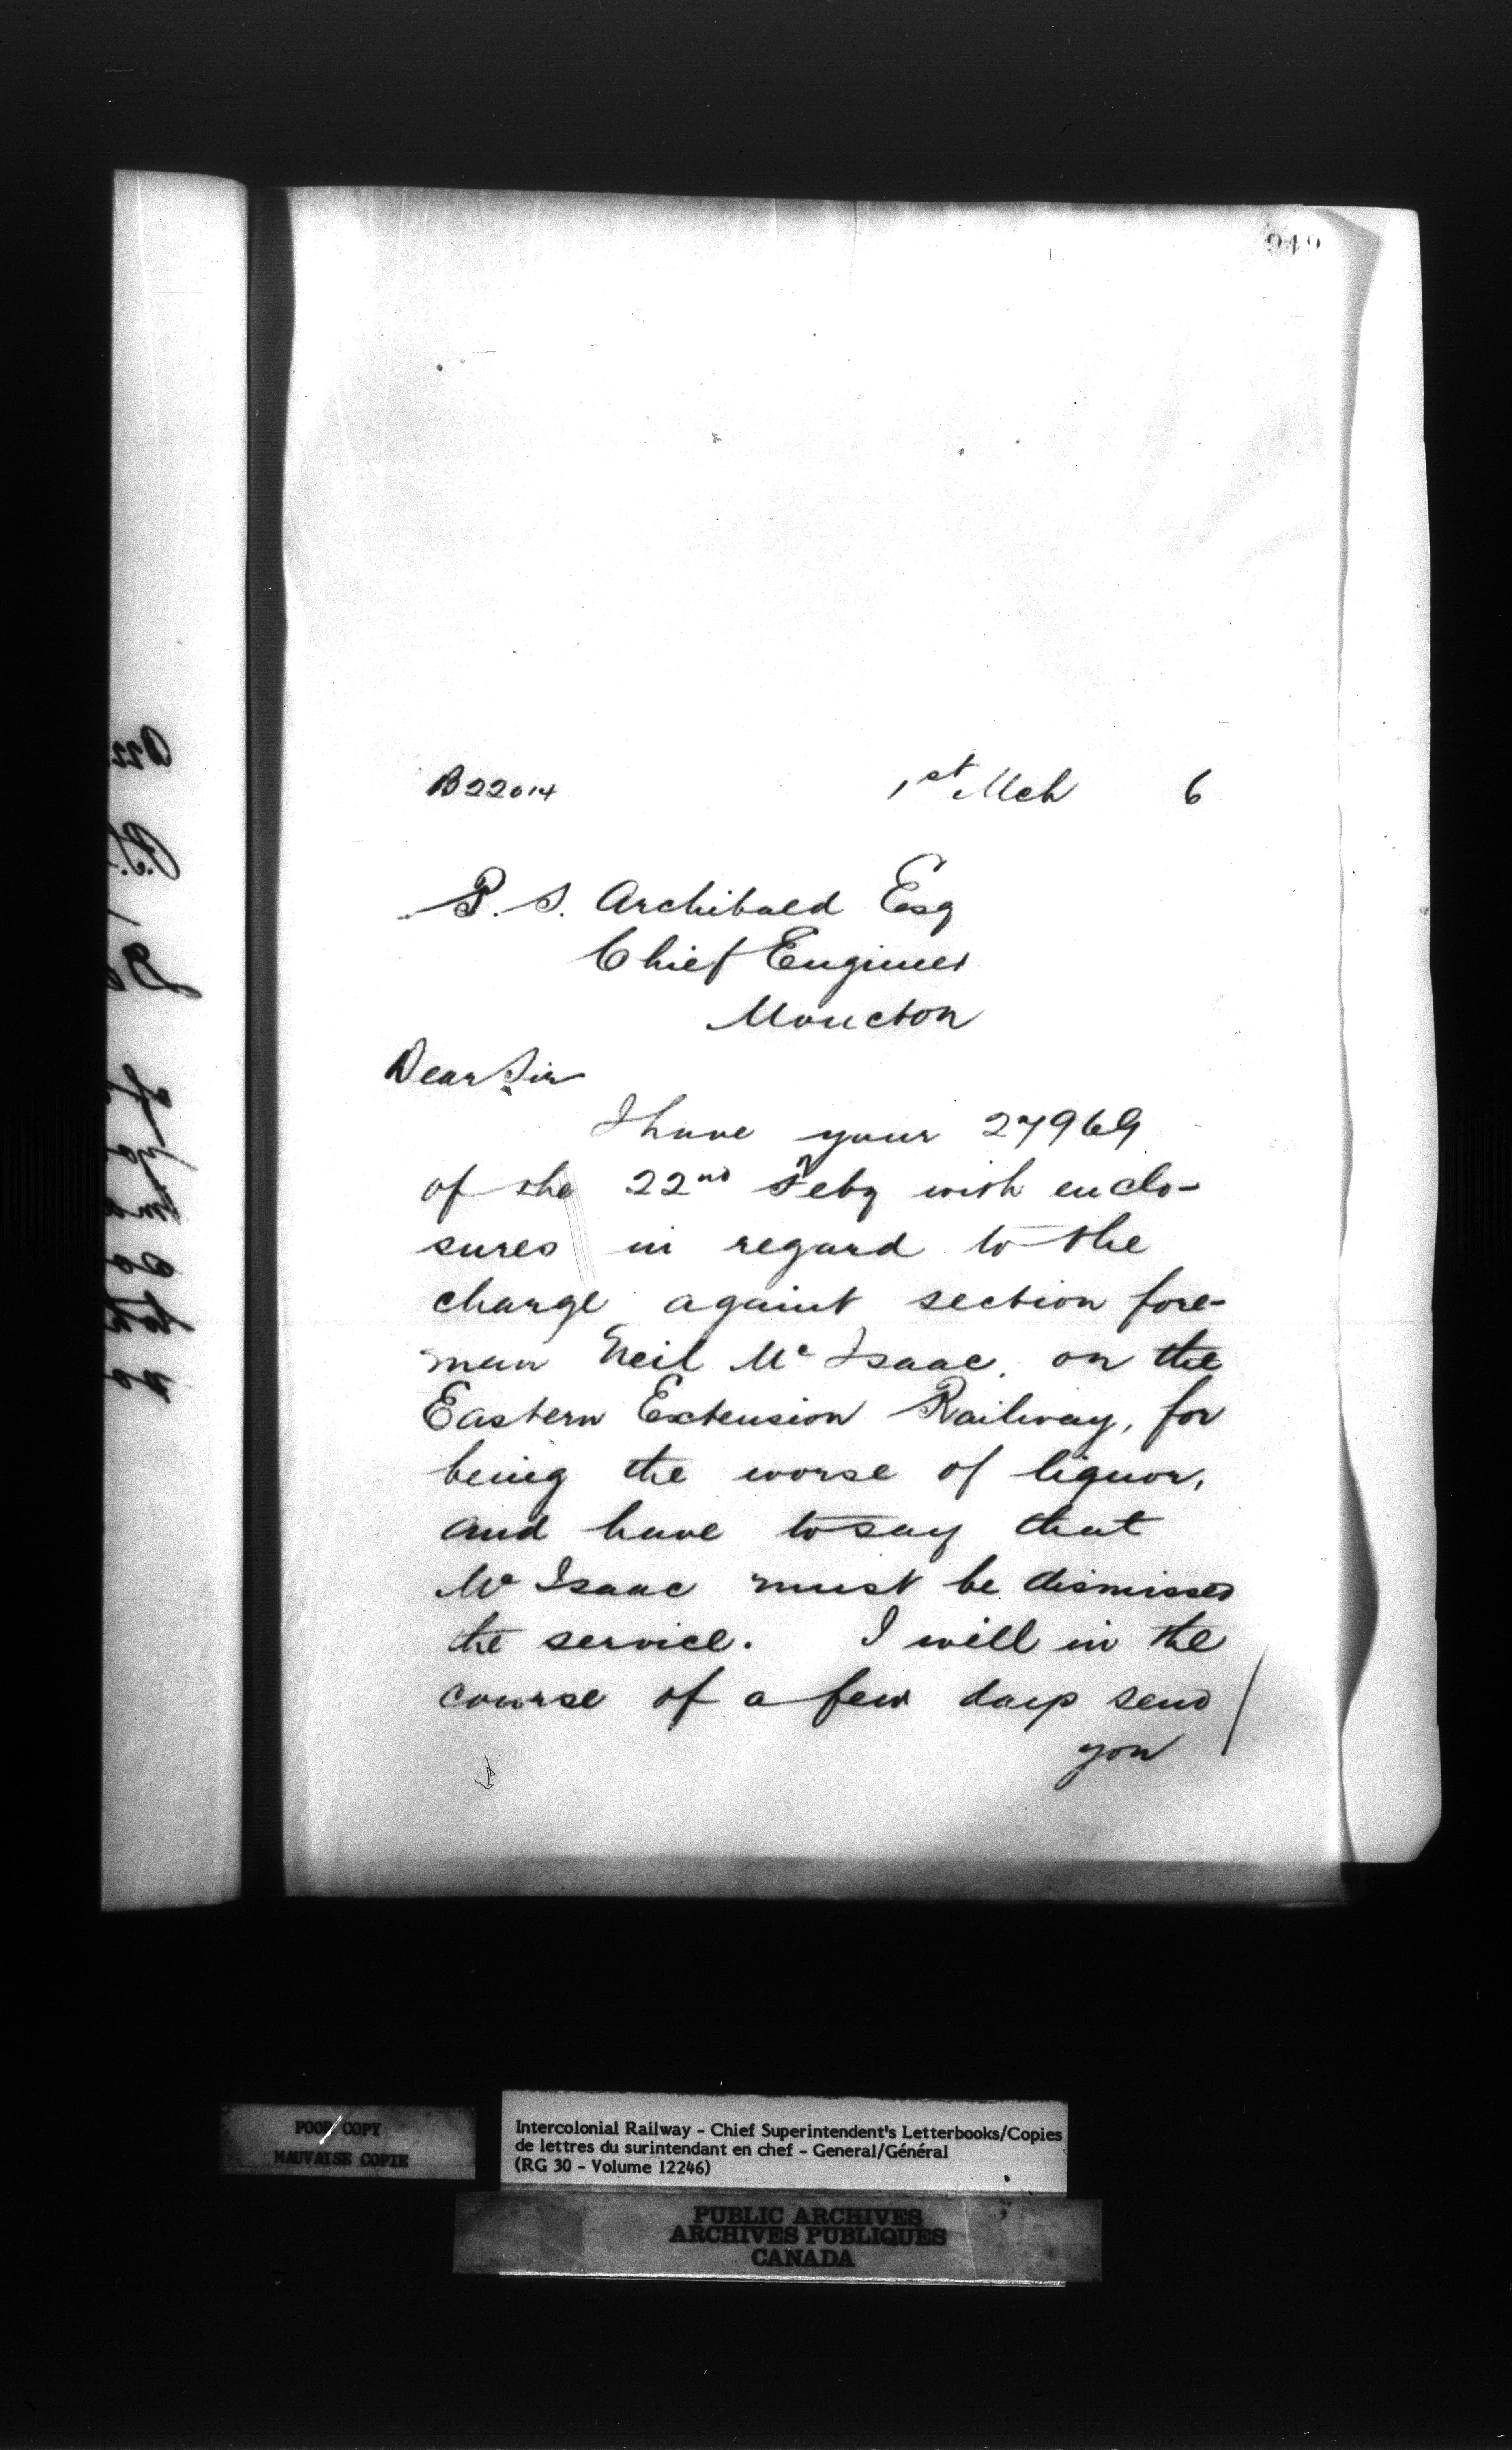 949
B22014 1st Mch 6
P. S. Archibald Esq
Chief Engineer
Moncton
Dear Sir
I have your 27969
of the 22nd Feby with enclo-
sures in regard to the
charge against section fore-
man Neil Mc Isaac. on the
Eastern Extension Railway, for
being the worse of liquor,
and have to say that
Mc Isaac must be dismissed
the service. I will in the
course of a few days send
you
POOR COPY
MAUVAISE COPIE
Intercolonial Railway - Chief Superintendent's Letterbooks/Copies
de lettres du surintendant en chef - General/Général
(RG 30 - Volume 12246)
PUBLIC ARCHIVES
ARCHIVES PUBLIQUES
CANADA